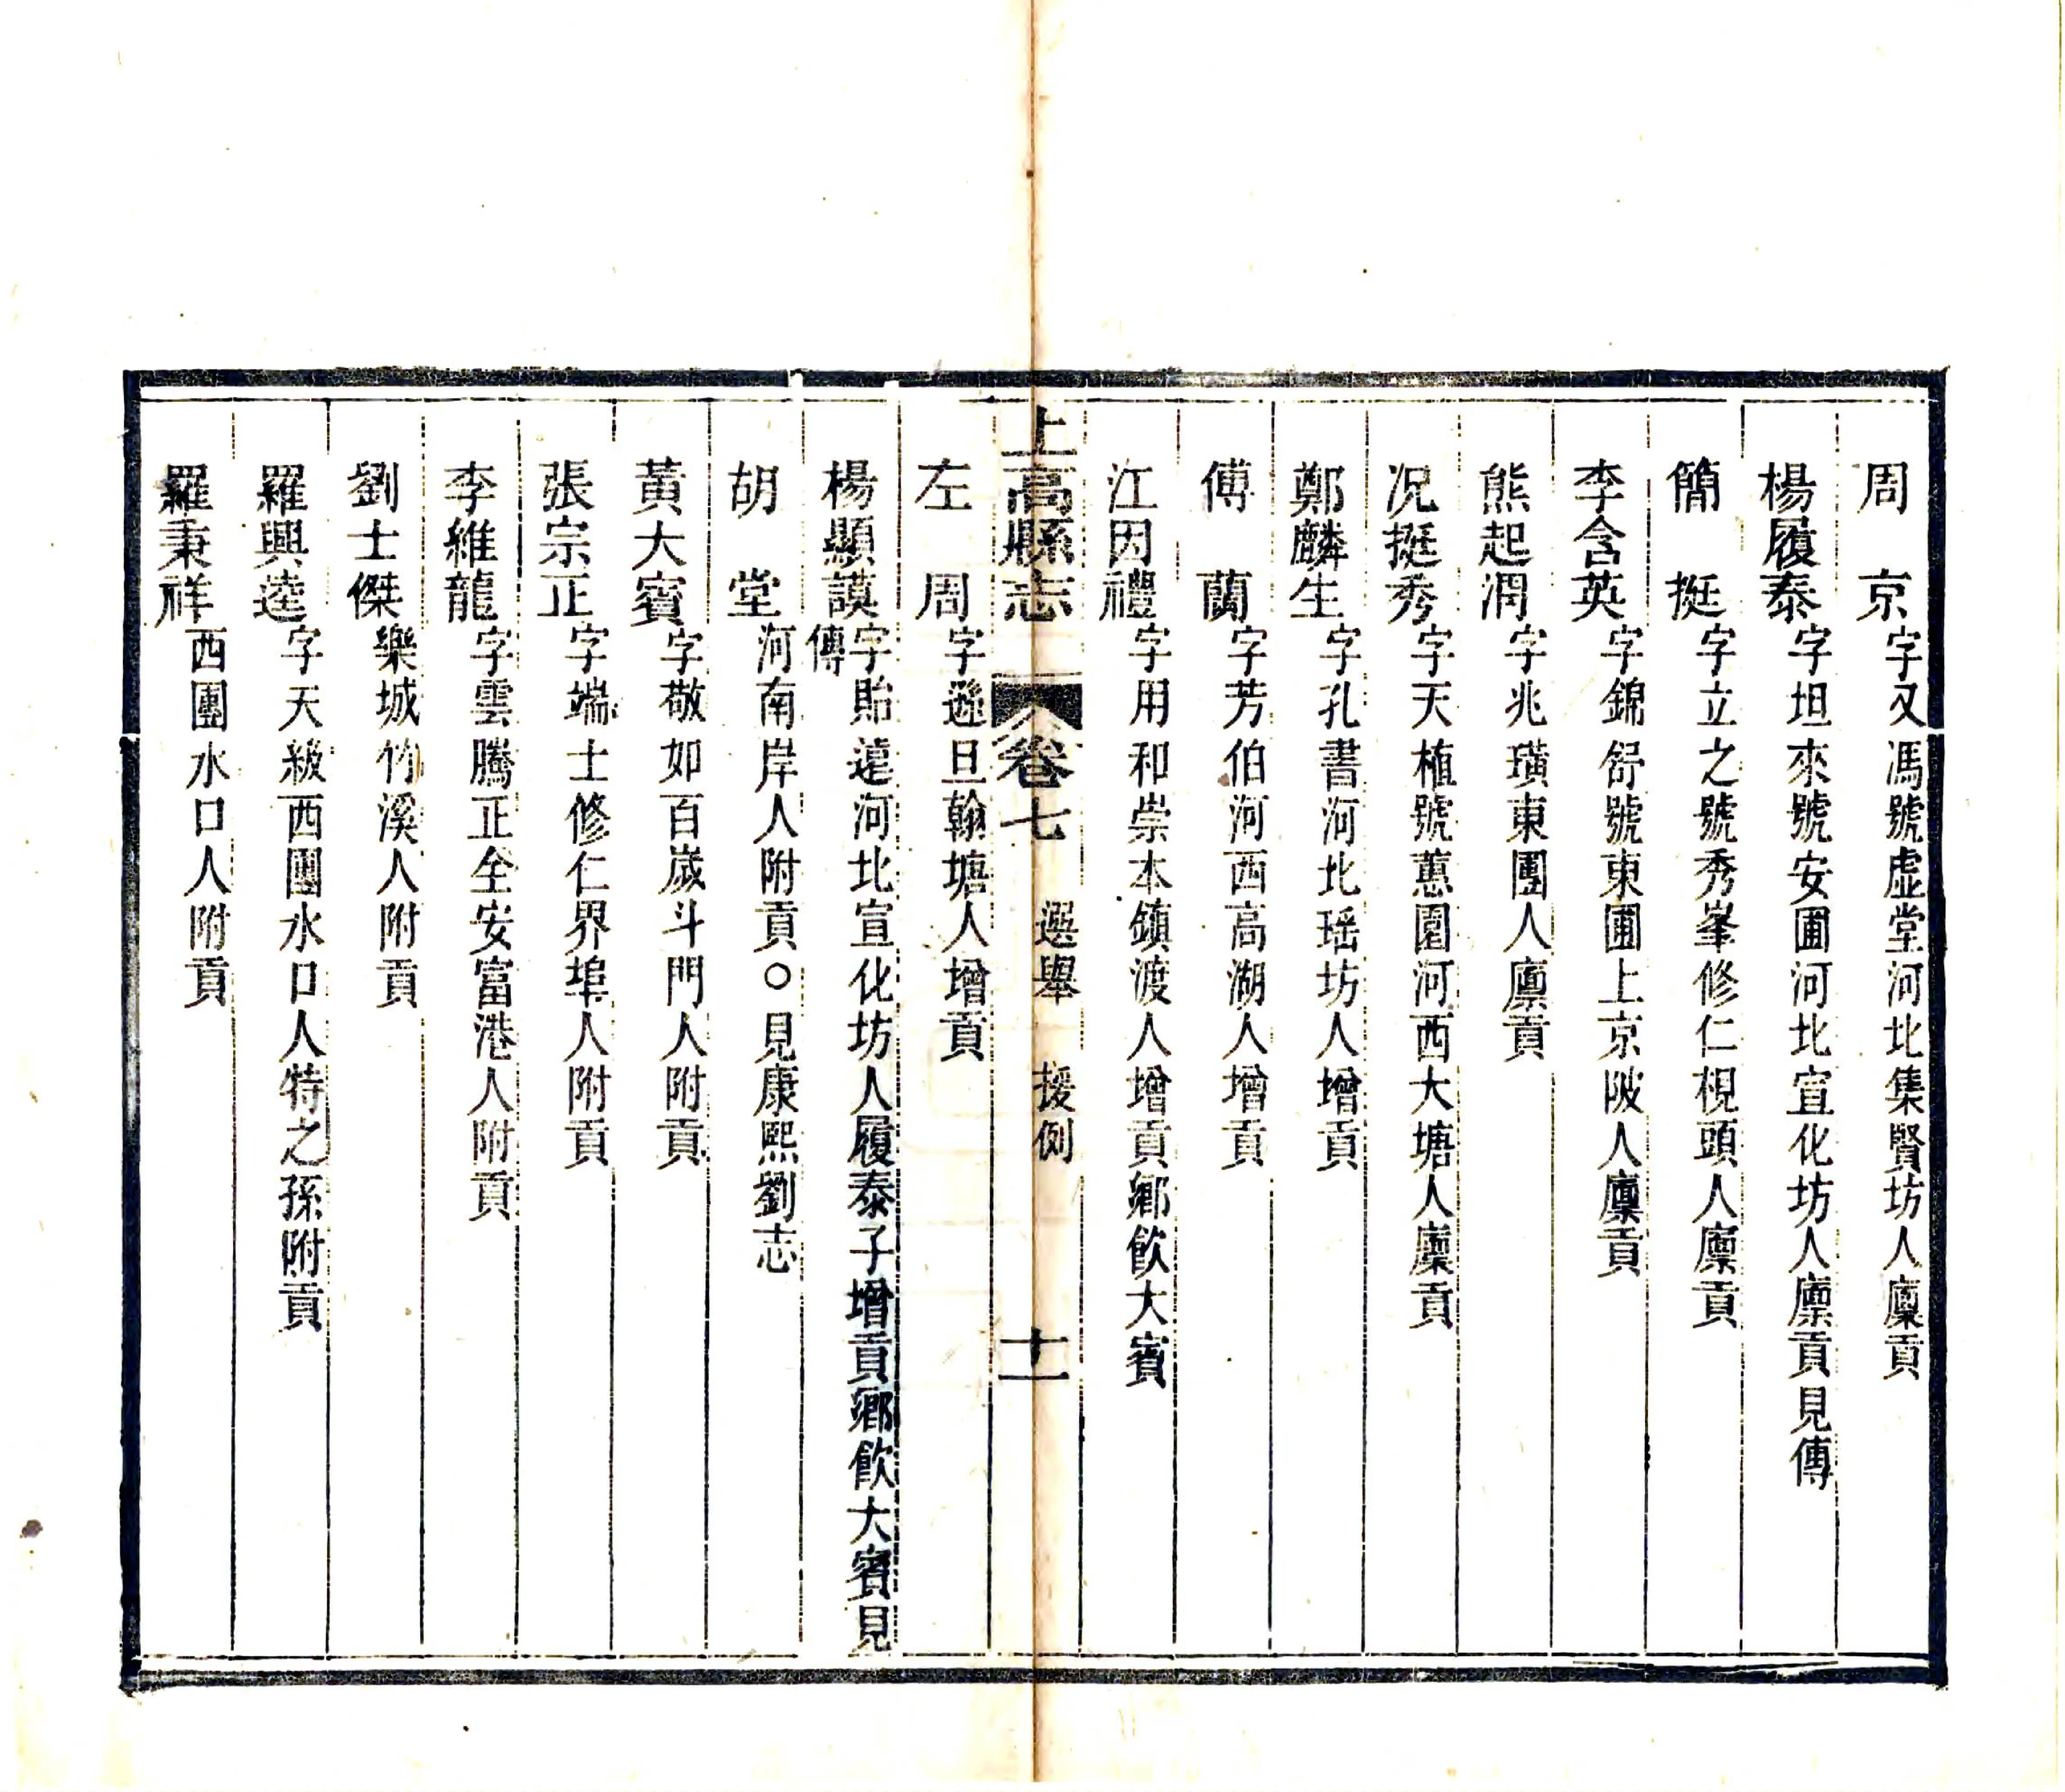 周　京字又馮號虛堂河北集賢坊人廩貢
楊履泰字坦來號安圃河北宣化坊人廩貢見傳
簡　挺字立之號秀峯修仁梘頭人廩貢
李含英字錦舒號東圃上京陂人廩貢
熊起渭字兆璜東團人廩貢
况挺秀字天植號蕙園河西大塘人廩貢
鄭麟生字孔書河北瑶坊人增貢
傅　蘭字芳伯河西高湖人增貢
江因禮字用和崇本鎮渡人增貢鄉飲大賓
上高縣志　卷七　選舉　援例　十一
左　周字遜旦翰塘人增貢
楊顯謨字貽遠河北宣化坊人履泰子增貢鄉飲大賓見
傳
胡　堂河南岸人附貢○見康熙劉志
黃大賓字敬如百嵗斗門人附貢
張宗正字端士修仁界埠人附貢
李維龍字雲騰正全安富港人附貢
劉士傑樂城竹溪人附貢
羅興逵字天級西團水口人特之孫附貢
羅秉祥西團水口人附貢